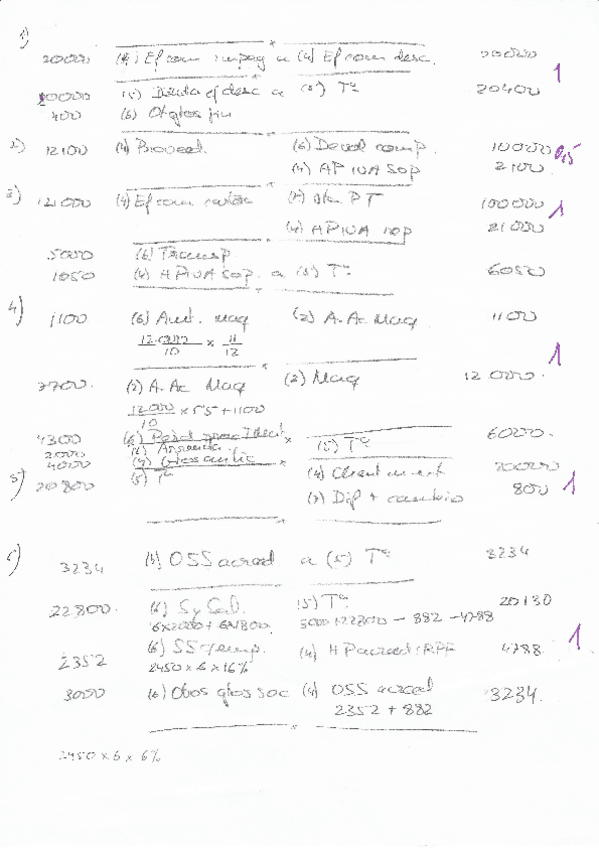 1)
20000 (4) Ef com impag a (4) Ef com desc. 20000
20000 (5) Deuda ef desc a (5) Tª 20400 1
400 (6) Ot gtos fin
2) 12100 (4) Proveed. (6) Devol comp. 10000 0,5
(4) HP IVA Sop 2100
3) 121000 (4) Ef com cartera (7) PT 100000 1
(4) HP IVA rep 21000
5000 (6) Transp
1050 (4) HP IVA Sop. a (5) Tª 6050
4) 1100 (6) Amt. Maq (2) A. Ac Maq 1100
12.000/10 x 11/12
7700. (2) A. Ac Maq (2) Maq 12000. 1
12000/10 x 5'5 + 1100
4300 (5) Tª 6000.
2000
4000
5) 20800 (5) Tª (4) Client 20000
(7) Dif + cambio 800 1
3234 (4) OSS acreed a (5) Tª 3234
22800. (6) S y Sal. (5) Tª 20130
6x2000 + 6x1800. 5000 + 22800 - 882 - 4788
2352 (6) SS emp. (4) HP acreed IRPF 4788. 1
2450 x 6 x 16%
3000 (6) Otros gtos soc (4) OSS acreed 3234.
2352 + 882
2450 x 6 x 6%